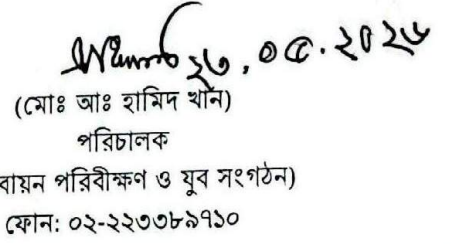 ০৫.২০২৬
(মোঃ আঃ হামিদ খান)
পরিচালক
বায়ন পরিবীক্ষণ ও যুব সংগঠন)
ফোন: ০২-২২৩৩৮৯৭১০